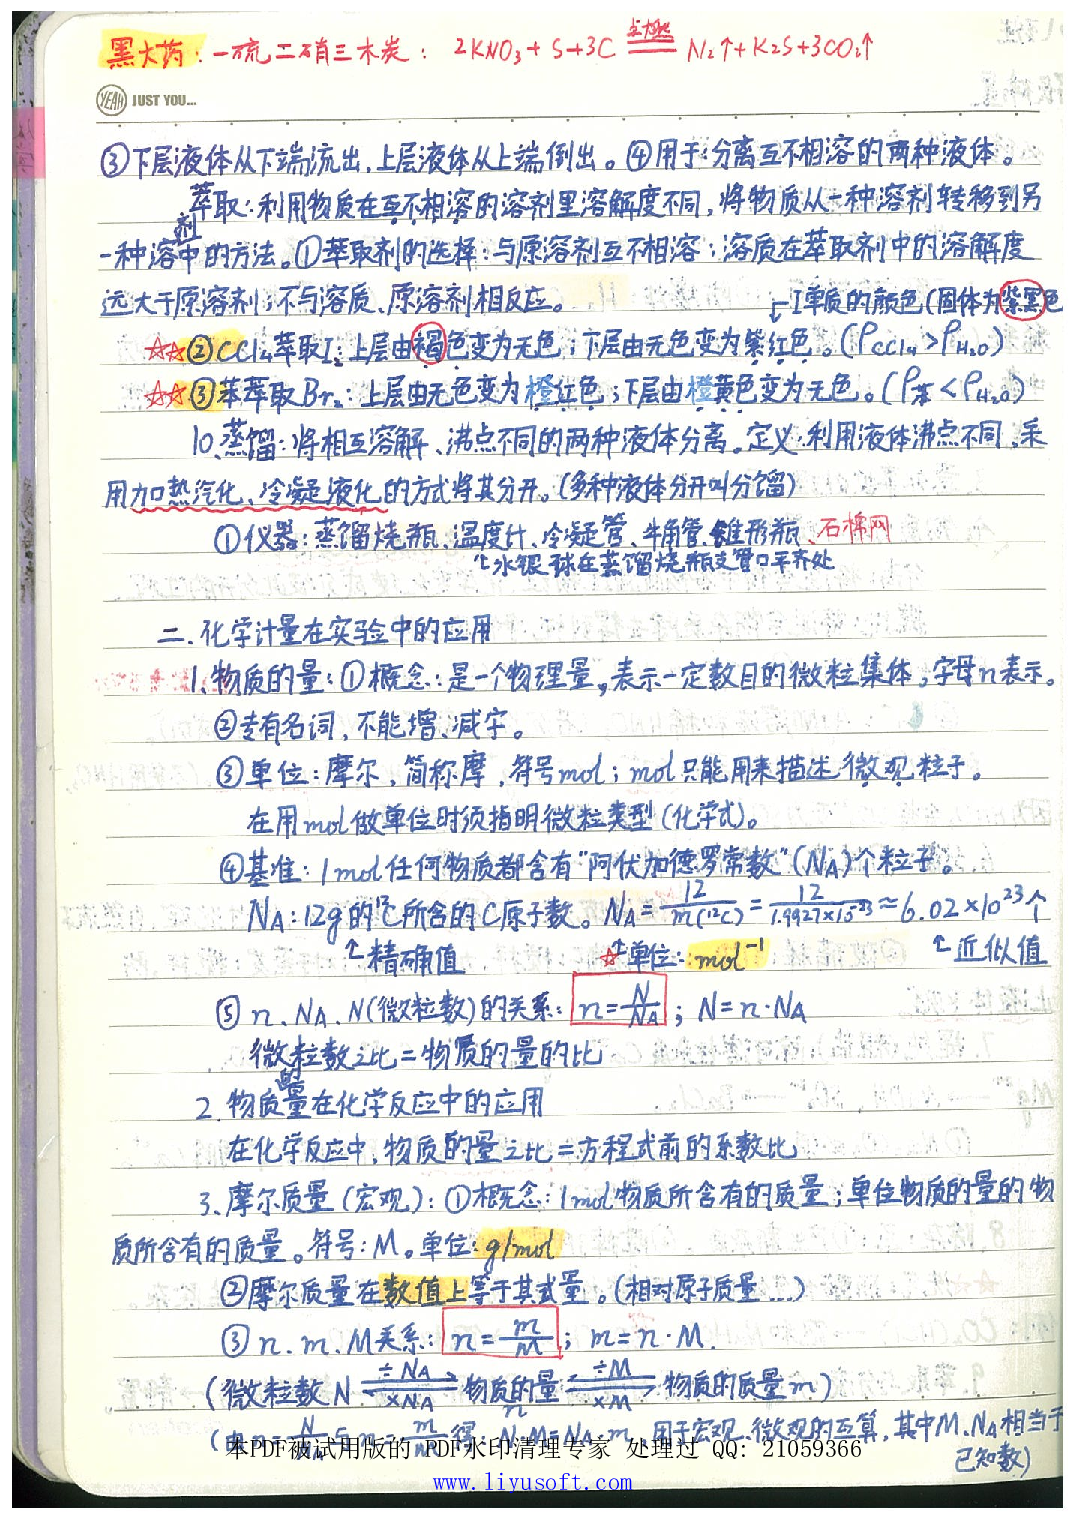 黑火药：一硫二硝三木炭： 2KNO₃+S+3C 点燃 N₂↑+K₂S+3CO₂↑
YEAH JUST YOU...
③下层液体从下端流出，上层液体从上端倒出。④用于：分离互不相溶的两种液体。
萃取：利用物质在互不相溶的溶剂里溶解度不同，将物质从一种溶剂转移到另
一种溶剂中的方法。①萃取剂的选择：与原溶剂互不相溶；溶质在萃取剂中的溶解度
远大于原溶剂；不与溶质、原溶剂相反应。
↓I单质的颜色(固体为紫黑色
☆☆②CCl₄萃取I₂：上层由褐色变为无色；下层由无色变为紫红色。(ρCCl₄>ρH₂O)
☆☆③苯萃取Br₂：上层由无色变为橙红色；下层由橙黄色变为无色。(ρ苯<ρH₂O)
10、蒸馏：将相互溶解、沸点不同的两种液体分离。定义：利用液体沸点不同，采
用加热汽化、冷凝液化的方式将其分开。(多种液体分开叫分馏)
①仪器：蒸馏烧瓶、温度计、冷凝管、牛角管、锥形瓶、石棉网
↑水银球在蒸馏烧瓶支管口平齐处
二、化学计量在实验中的应用
1、物质的量：①概念：是一个物理量，表示一定数目的微粒集体，字母n表示。
②专有名词，不能增、减字。
③单位：摩尔，简称摩，符号mol；mol只能用来描述微观粒子。
在用mol做单位时须指明微粒类型(化学式)。
④基准：1mol任何物质都含有"阿伏加德罗常数"(NA)个粒子。
NA：12g的¹²C所含的C原子数。NA=12/m(¹²C)=12/1.9927×10⁻²³≈6.02×10²³个
↑精确值 ☆↑单位：mol⁻¹ ↑近似值
⑤n、NA、N(微粒数)的关系：n=N/NA；N=n·NA
微粒数之比=物质的量的比
2、物质的量在化学反应中的应用
在化学反应中，物质的量之比=方程式前的系数比
3、摩尔质量(宏观)：①概念：1mol物质所含有的质量；单位物质的量的物
质所含有的质量。符号：M。单位：g/mol
②摩尔质量在数值上等于其式量。(相对原子质量...)
③n、m、M关系：n=m/M；m=n·M.
(微粒数N ÷NA ×NA 物质的量n ÷M ×M 物质的质量m)
(由n=N/NA n=m/M得：N·M=NA·m，用于宏观、微观的互算，其中M、NA相当于
已知数)
本PDF被试用版的 PDF水印清理专家 处理过 QQ: 21059366
www.liyusoft.com